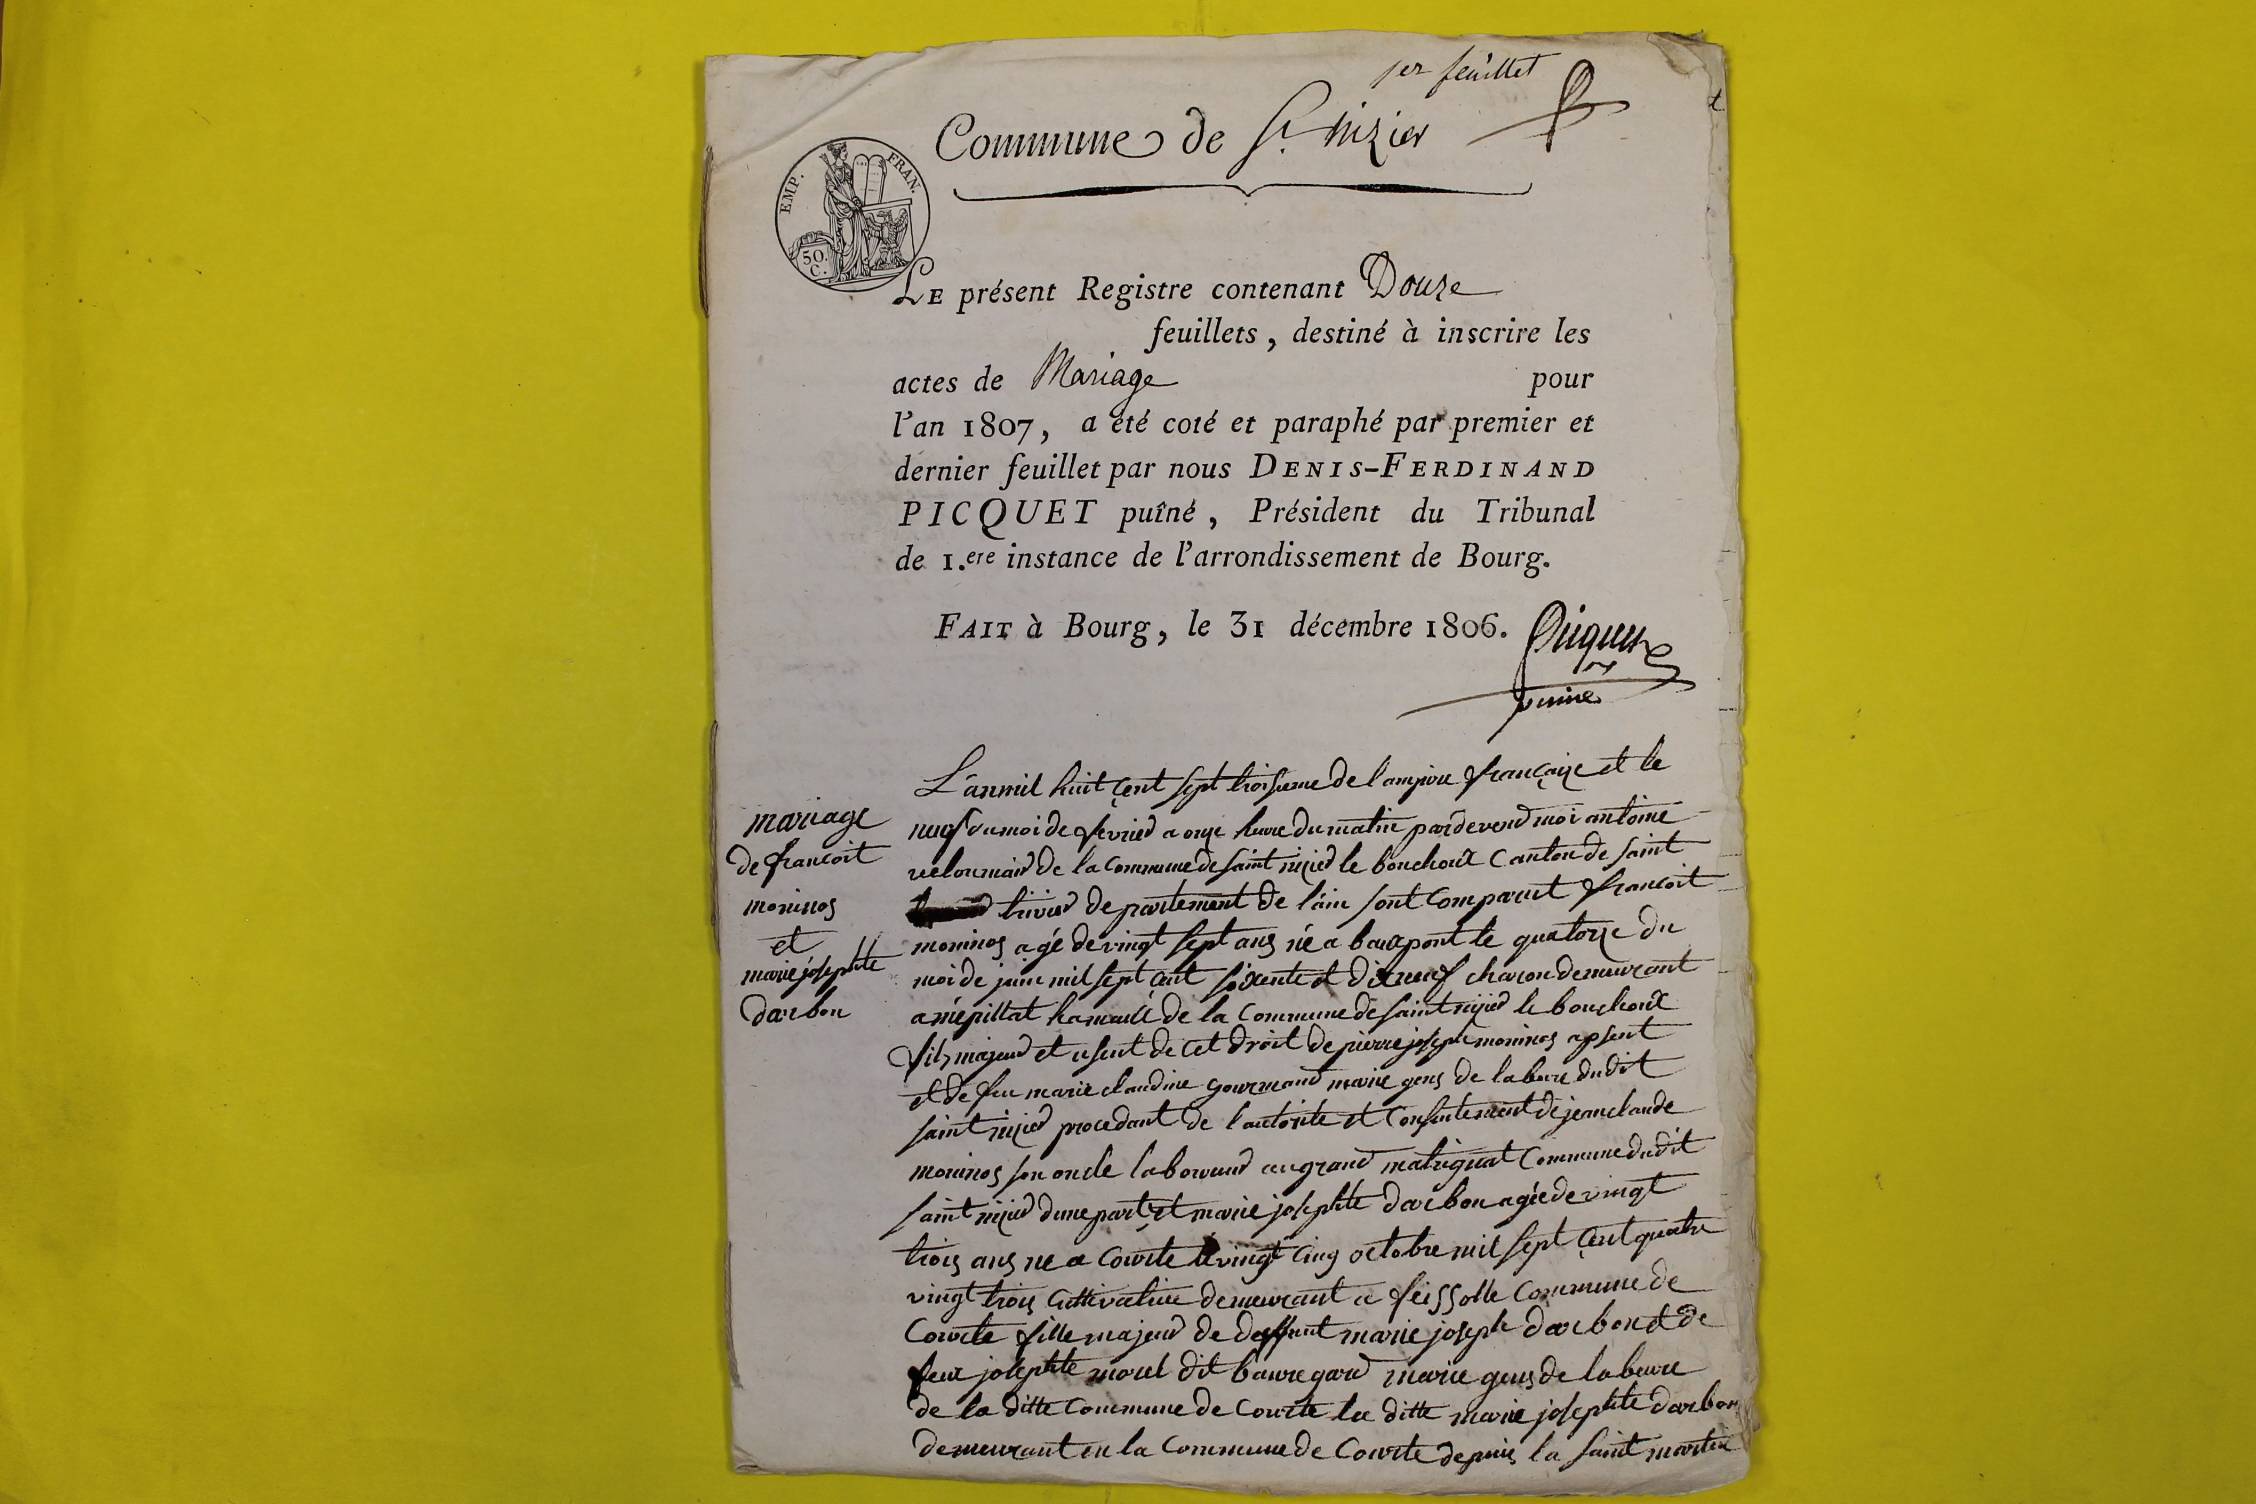 1er feuillet
Commune de St. nizier
EMP. FRAN.
50. C.
LE présent Registre contenant Douze
feuillets, destiné à inscrire les
actes de Mariage pour
l'an 1807, a été coté et paraphé par premier et
dernier feuillet par nous DENIS-FERDINAND
PICQUET puîné, Président du Tribunal
de 1.ere instance de l'arrondissement de Bourg.
FAIT à Bourg, le 31 décembre 1806.
Picquet
puiné
mariage
de francoit
moninos
et
marie josephte
darbon
L'anmil huit çent sept troisieme de l'ampire françaize et le
neuf du moi de fevrier a onze heure du matin pardevend moi antoine
maire de la Commune de saint nizier le bouchoux Canton de saint
trivier departement de l'ain sont Comparut francoit
moninos agé de vingt sept ans né a beaupont le quatorze du
moi de juin mil sept çent soixente et dixneuf charon demeurant
a mépillat hamaux de la Commune de saint nizier le bouchoux
fils majeur et usent de cet droit de pierre joseph moninos apsent
et de feu marie claudine gourmand marie gens de labeure dudit
saint nizier procedant de l'autorite et Consentement de jean claude
moninos son oncle laboureur au grand matrignat Commune dudit
saint nizier dune part et marie josephte darbon agée de vingt
trois ans ne a Courte le vingt cinq octobre mil sept çent quatre
vingt trois Cultivatrice demeurant a feissolle Commune de
Courte fille majeur de deffunt marie joseph darbon et de
feue josephte morel dit bauregard marie gens de labeure
de la ditte Commune de Courte la ditte marie josephte darbon
demeurant en la Commune de Courte depuis la saint martin